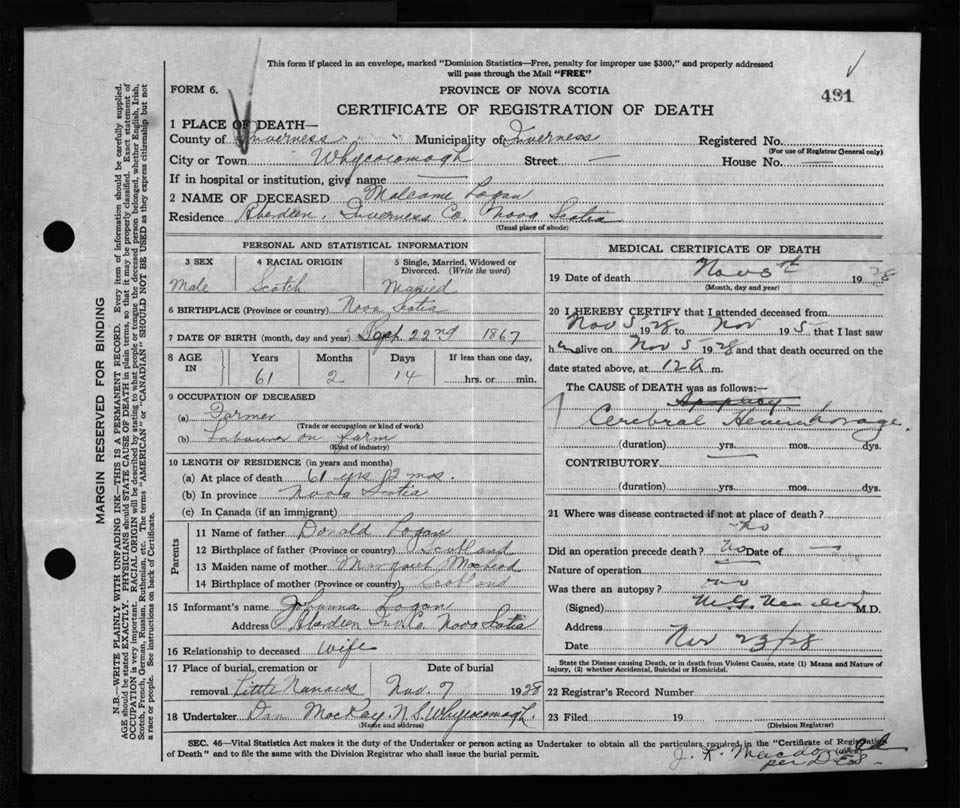 This form if placed in an envelope, marked "Dominion Statistics—Free, penalty for improper use $300," and properly addressed
will pass through the Mail "FREE"
FORM 6.
PROVINCE OF NOVA SCOTIA
491
CERTIFICATE OF REGISTRATION OF DEATH
1 PLACE OF DEATH—
County of Inverness Municipality of Inverness Registered No.
(For use of Registrar General only)
City or Town Whycocomagh Street — House No. —
If in hospital or institution, give name —
2 NAME OF DECEASED Malcome Logan
Residence Aberdeen, Inverness Co. Nova Scotia
(Usual place of abode)
MARGIN RESERVED FOR BINDING
N.B.—WRITE PLAINLY WITH UNFADING INK—THIS IS A PERMANENT RECORD. Every item of information should be carefully supplied.
AGE should be stated EXACTLY. PHYSICIANS should STATE CAUSE OF DEATH in plain terms, so that it may be properly classified. Exact statement of
OCCUPATION is very important. RACIAL ORIGIN will be described by stating to what people or tongue the deceased person belonged, whether English, Irish,
Scotch, French, German, Russian, Ruthenian, etc. The terms "AMERICAN" or "CANADIAN" SHOULD NOT BE USED as they express citizenship but not
a race or people. See instructions on back of Certificate.
PERSONAL AND STATISTICAL INFORMATION
3 SEX
Male
4 RACIAL ORIGIN
Scotch
5 Single, Married, Widowed or
Divorced. (Write the word)
Married
6 BIRTHPLACE (Province or country) Nova Scotia
7 DATE OF BIRTH (month, day and year) Sept 22nd 1867
8 AGE
IN
Years Months Days If less than one day,
61 2 14 hrs. or min.
9 OCCUPATION OF DECEASED
(a) Farmer
(Trade or occupation or kind of work)
(b) Labourer on farm
(Kind of industry)
10 LENGTH OF RESIDENCE (in years and months)
(a) At place of death 61 yrs 2 mos.
(b) In province Nova Scotia
(c) In Canada (if an immigrant)
Parents
11 Name of father Donald Logan
12 Birthplace of father (Province or country) Scotland
13 Maiden name of mother Margaret
14 Birthplace of mother (Province or country) Scotland
15 Informant's name Johanna Logan
Address Aberdeen Inv. Co. Nova Scotia
16 Relationship to deceased Wife
17 Place of burial, cremation or Date of burial
removal Little Narrows Nov. 7 1928
18 Undertaker Dan MacKay, N.S. Whycocomagh.
(Name and address)
MEDICAL CERTIFICATE OF DEATH
19 Date of death Nov 5th 1928
(Month, day and year)
20 I HEREBY CERTIFY that I attended deceased from
Nov 5 1928 to Nov 195 that I last saw
h alive on Nov 5 1928 and that death occurred on the
date stated above, at 12 m.
The CAUSE of DEATH was as follows:—
Cerebral Hemmhorage.
(duration) yrs. mos. dys.
CONTRIBUTORY
(duration) yrs. mos. dys.
21 Where was disease contracted if not at place of death?
no
Did an operation precede death? no Date of —
Nature of operation
Was there an autopsy? no
(Signed) M.D.
Address
Date Nov 23/28
State the Disease causing Death, or in death from Violent Causes, state (1) Means and Nature of
Injury, (2) whether Accidental, Suicidal or Homicidal.
22 Registrar's Record Number
23 Filed 19
(Division Registrar)
SEC. 46—Vital Statistics Act makes it the duty of the Undertaker or person acting as Undertaker to obtain all the particulars required in the "Certificate of Registration
of Death" and to file the same with the Division Registrar who shall issue the burial permit.